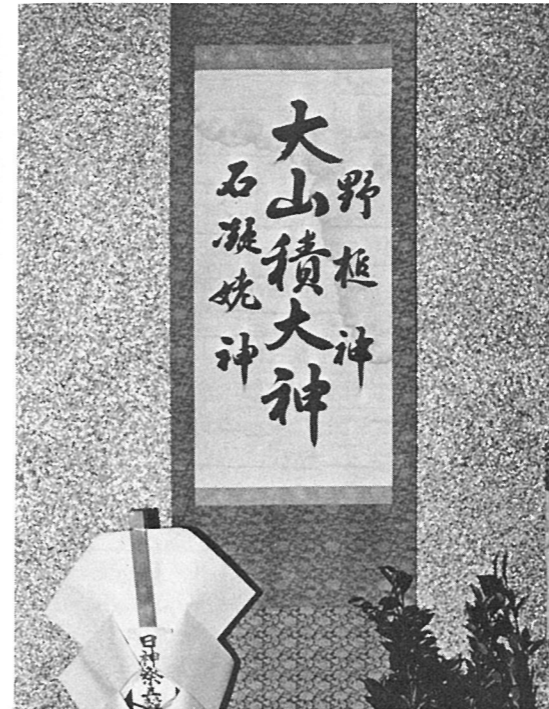 野槌神
大山積大神
石凝姥神
日神祭